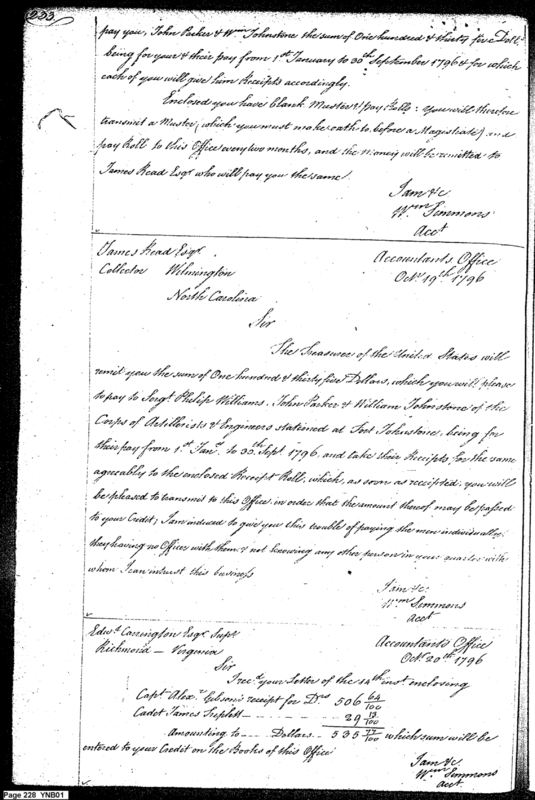 223
pay you, John Parker & Wm Johnstone the sum of One hundred & thirty five Dolls
being for your & their pay from 1st January to 30th September 1796 & for which
each of you will give him Receipts accordingly.
Enclosed you have blank Muster & pay Rolls: You will therefore
transmit a Muster (which you must make oath to before a Magistrate) and
pay Roll to this Office every two months, and the money will be remitted to
James Read Esqr who will pay you the same.
I am &c
Wm Simmons
Acct
James Read Esqr
Accountants Office
Collector Wilmington
Octr 19th 1796
North Carolina
Sir
The Treasurer of the United States will
remit you the sum of One hundred & thirty five Dollars, which you will please
to pay to Sergt Philip Williams, John Parker & William Johnstone of the
Corps of Artillerists & Engineers stationed at Fort Johnstone, being for
their pay from 1st Jany to 30th Sept 1796, and take their Receipts for the same
agreeably to the enclosed Receipt Roll, which, as soon as receipted, you will
be pleased to transmit to this Office in order that the amount thereof may be passed
to your Credit; I am induced to give you this trouble of paying the men individually
they having no Officer with them & not knowing any other person in your quarter with
whom I can intrust this business
I am &c
Wm Simmons
acct
Edwd Carrington Esqr Supr
Accountants Office
Richmond — Virginia
Octr 20th 1796
Sir
I recd your Letter of the 14th inst enclosing
Capt Alexr Gibson's receipt for Drs 506 64/100
Cadet James Triplett 29 13/100
Amounting to Dollars 535 77/100 which sum will be
entered to your Credit on the Books of this Office
I am &c
Wm Simmons
acct
Page 228 YNB01